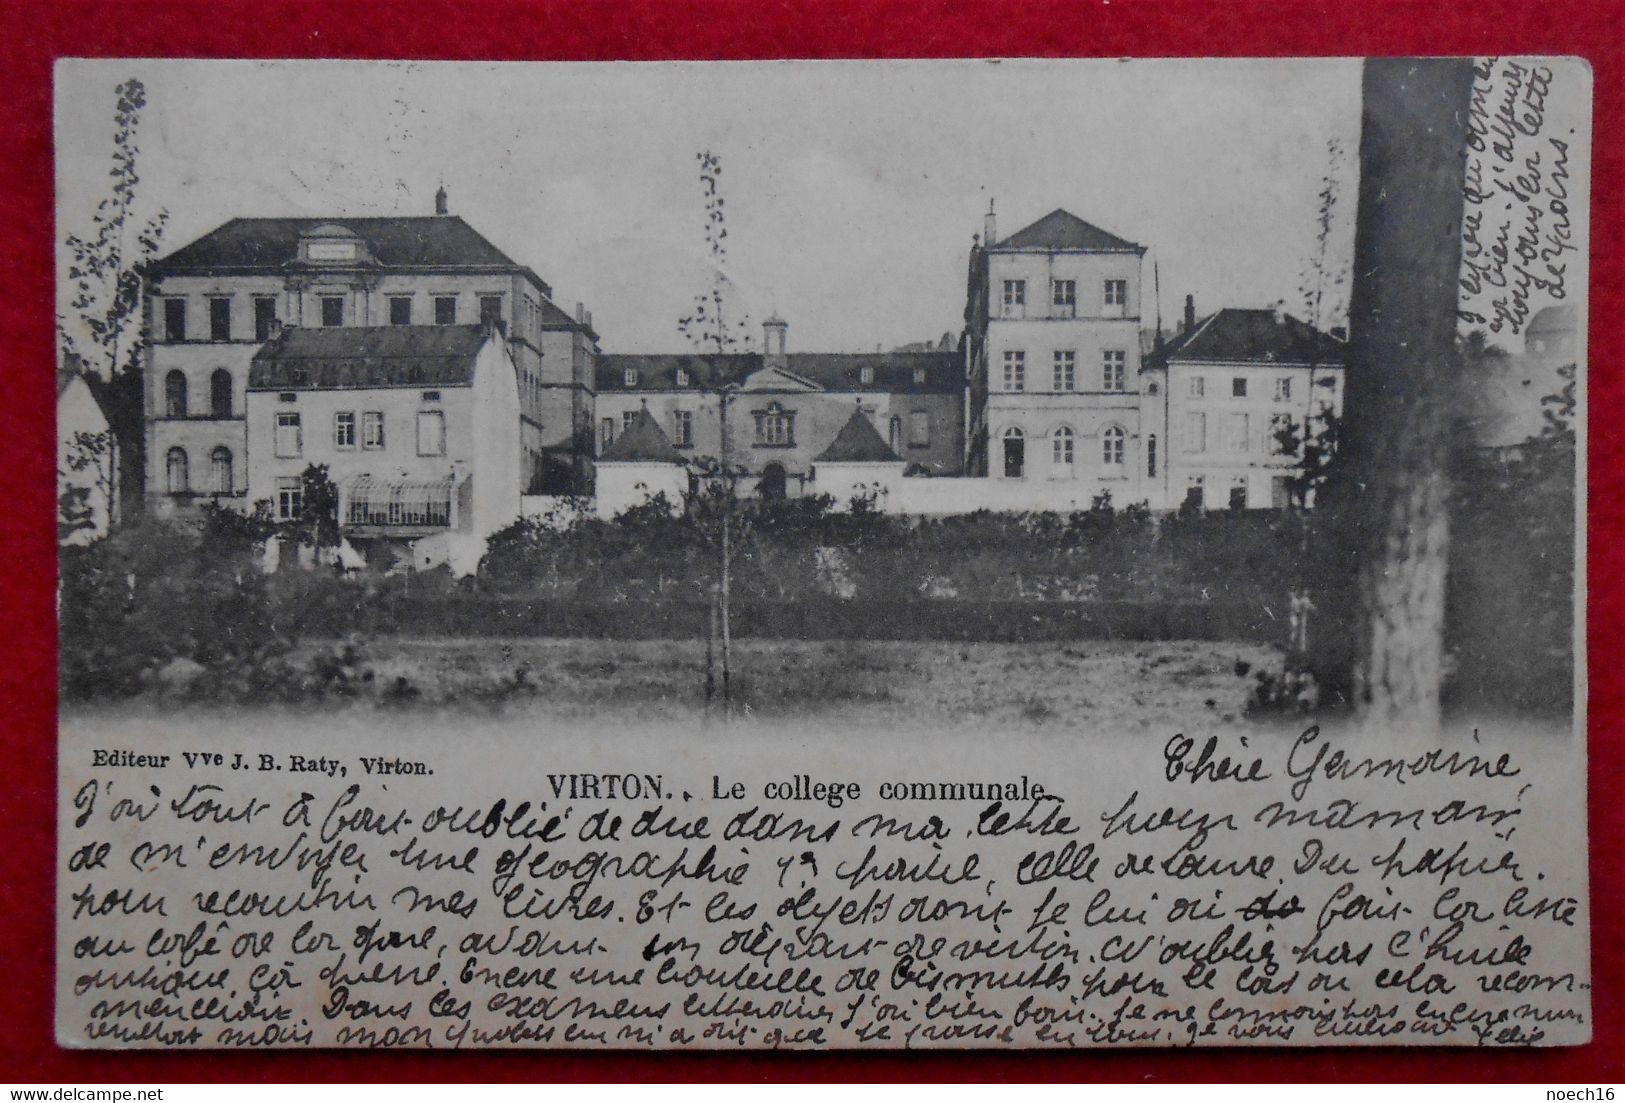 Editeur Vve J. B. Raty, Virton.
VIRTON. Le college communale
Chère Germaine,
J'ai tout à fait oublié de dire dans ma lettre pour maman,
de m'envoyer une géographie 1re partie, celle de Laure. Du papier
pour recouvrir mes livres. Et les objets dont je lui ai fait la liste
au café de la gare, avant mon départ de Virton. N'oublie pas l'huile
antique, ça presse. Encore une bouteille de Bismuth pour le cas où cela recom-
mencerait. Dans les examens j'ai bien fait. Je ne connais pas encore mon
résultat mais mon m'a dit que je passe en tout. Je vous
J'espère qu'
ira bien. J'attends
toujours la lettre
de
noech16